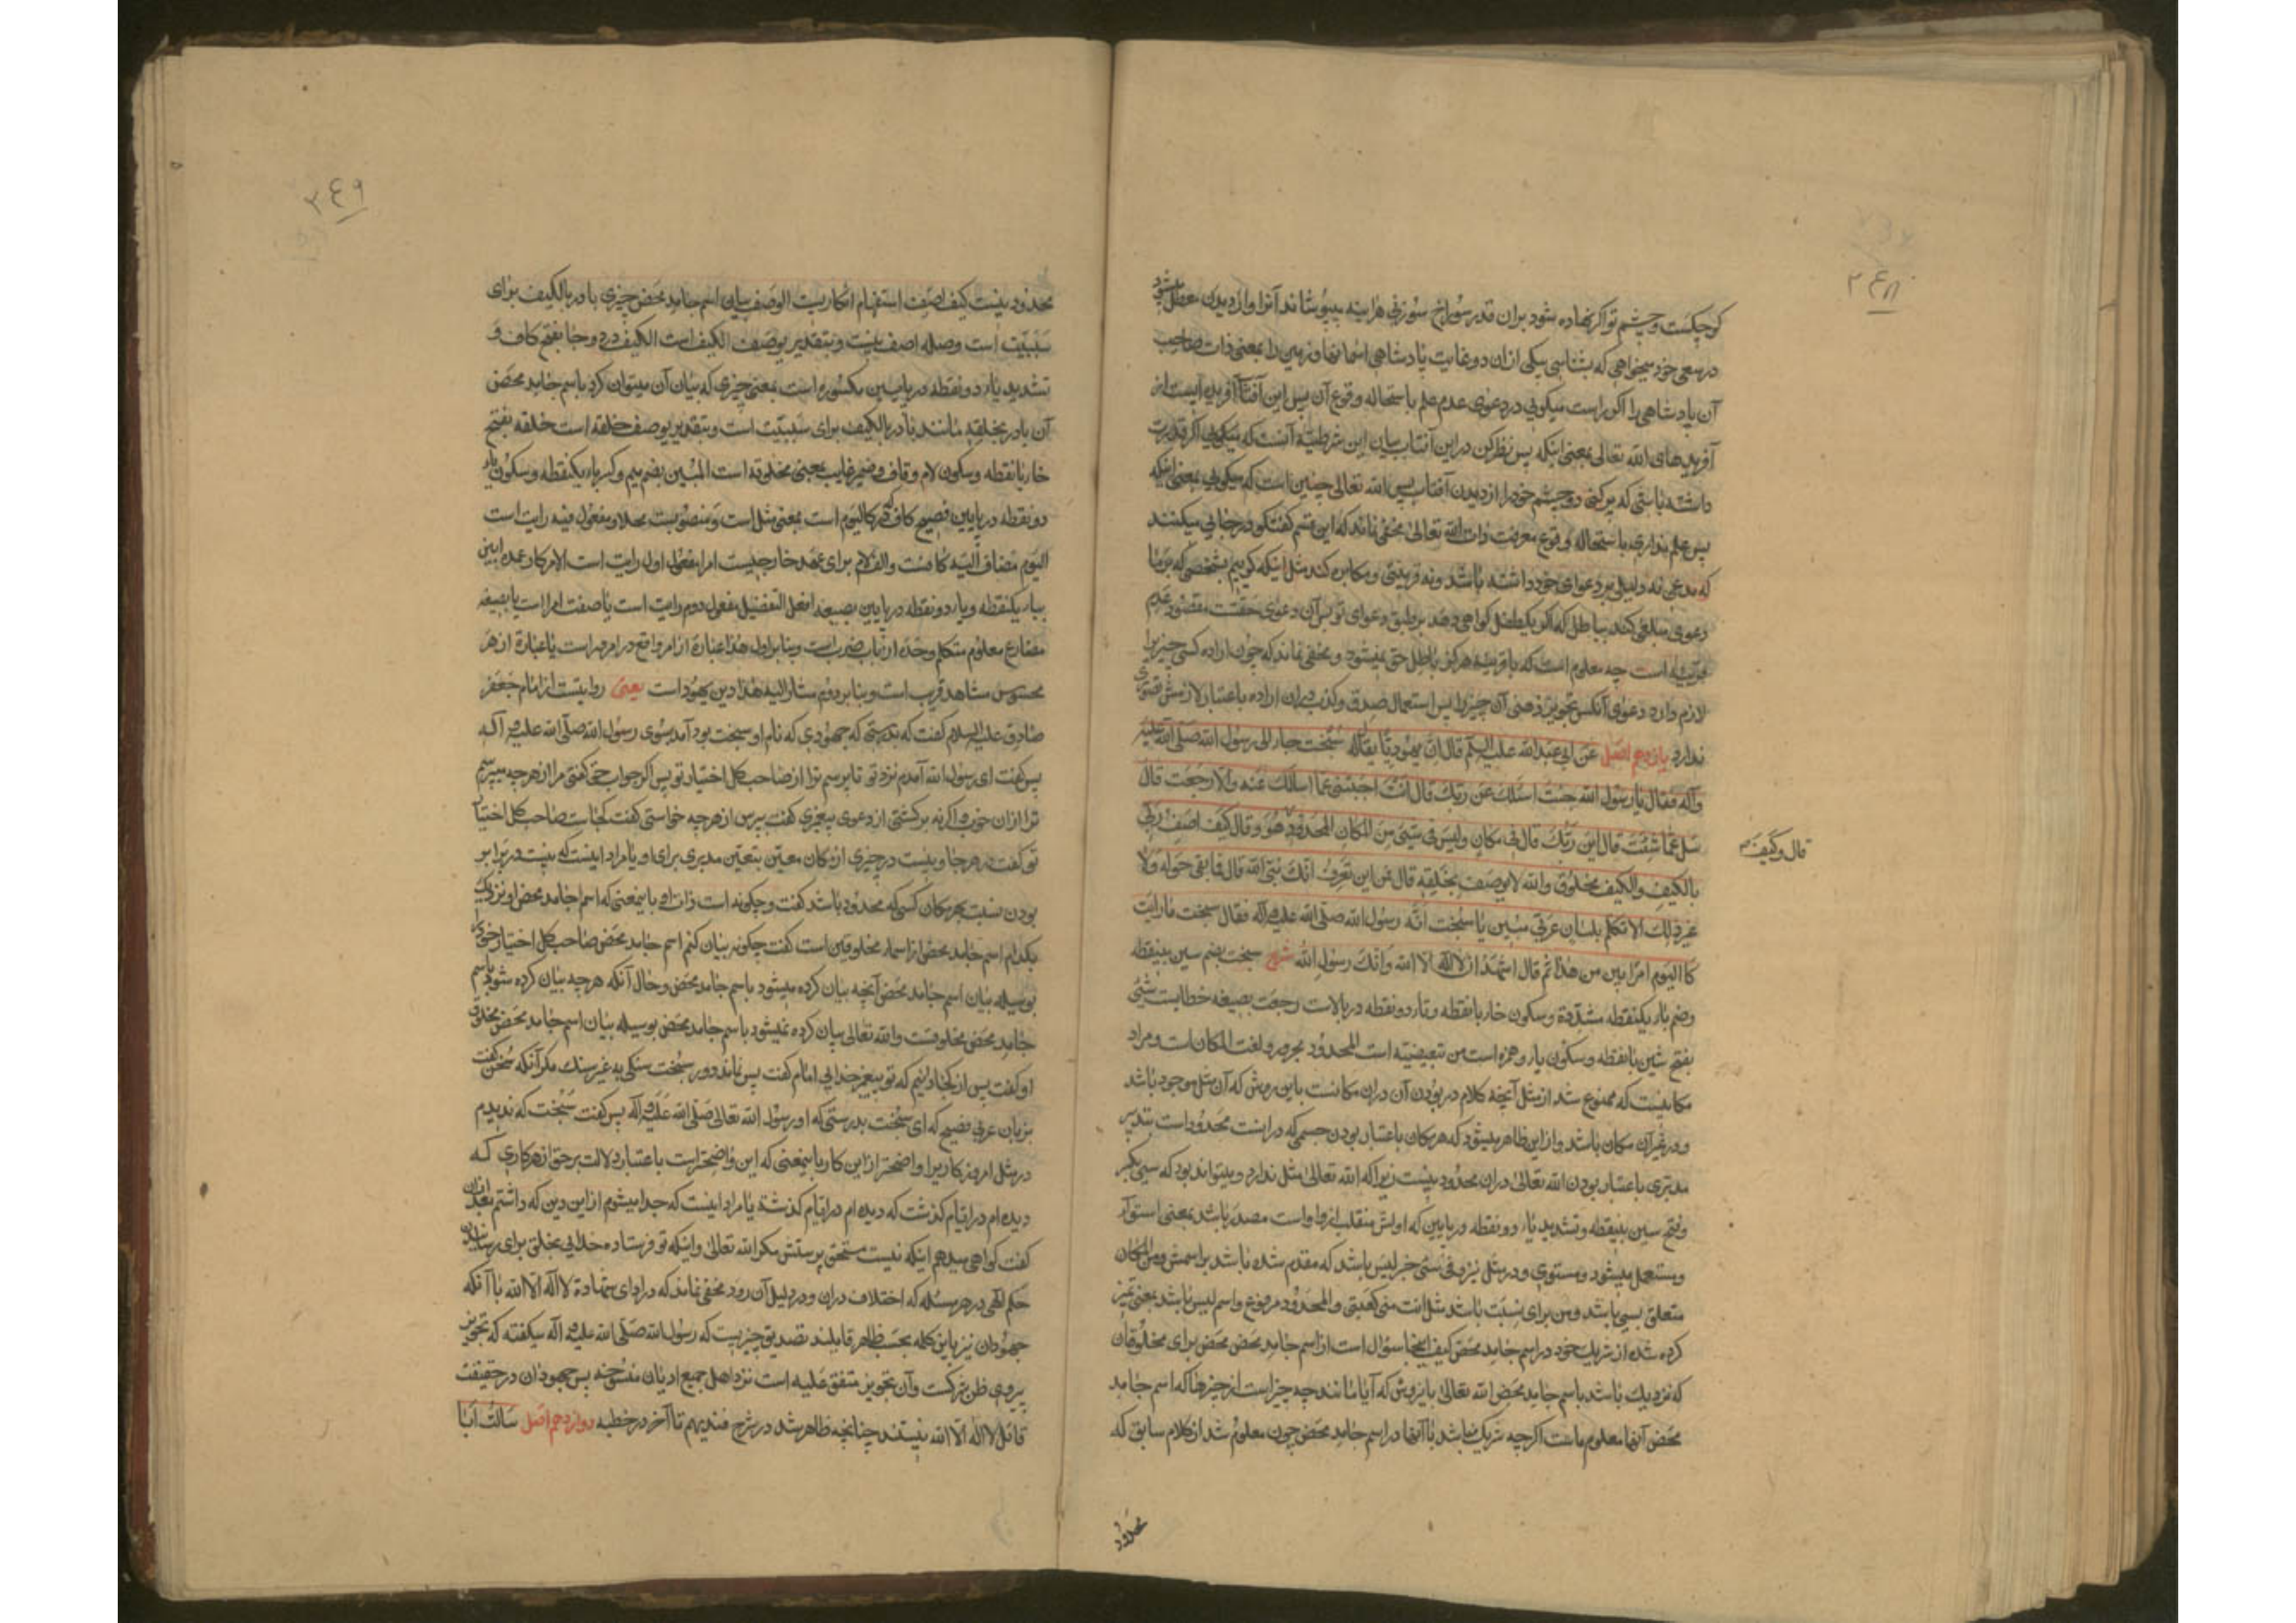 ۳۴۸
کوچکست و چشم تو اگر نهاده شود بران قدر سوراخ سوزنی هراینه بپوشاند آنرا و از دیدن معطل میشود
در سعی خود میخواهی که بشناسی بیکی ازان دو نهایت پادشاهی آسمانها و زمین را بمعنی ذات صاحب
آن پادشاهی را اگر راست میگویی در دعوی عدم علم باستحاله وقوع آن پس این آفتاب آفریده ایست از
آفریدهای الله تعالی بمعنی اینکه پس نظر کن در این آفتاب بیان این شرطیه آنست که میگویی اگر قدرت
داشته باشی که پر کنی دو چشم خود را از دیدن آفتاب پس الله تعالی چنین است که میگویی بمعنی اینکه
پس علم نداری باستحاله وقوع معرفت ذات الله تعالی مخفی نماند که این قسم گفتگو در جایی میکنند
که مدعی نه دلیلی بر دعوای خود داشته باشد و نه قرینهٔ و مکابره کند مثل اینکه گوییم بشخصی که بر ما
دعوی مبلغی کند بباطل که اگر یکطفل گواهی دهد بر طبق دعوای تو پس آن دعوی حقست مقصود عدم
قرینه است چه معلوم است که با قرینه هرگز باطل حق نمیشود و مخفی نماند که چون اراده کسی چیزیرا
لازم دارد دعوی آنکس تجویز ذهنی آن چیز را پس استعمال صدق و کذب در ان اراده باعتبار لازمش قصوری
ندارد یازدهم اصل عن ابی عبدالله علیه السلم قال ان یهودیا یقال له سبخت جاء الی رسول الله صلی الله علیه
وآله فقال یا رسول الله جئت اسئلک عن ربک فان انت اجبتنی عما اسئلک عنه والا رجعت قال
سل عما شئت قال این ربک قال فی کل مکان ولیس فی شیئ من المکان المحدود هو وقال کیف اصف ربی
قال وکیف هو
بالکیف والکیف مخلوق والله لا یوصف بخلقه قال فمن این نعرف انک نبی الله قال فما بقی حوله ولا
غیر ذلک الا تکلم بلسان عربی مبین یا سبخت انه رسول الله صلی الله علیه وآله فقال سبخت ما رایت
کالیوم امرا ابین من هذا ثم قال اشهد ان لا اله الا الله وانک رسول الله شرح سبخت بضم سین بینقطه
وضم باء یکنقطه مشدّدة وسکون خاء بانقطه وتاء دو نقطه در بالاست رجعت بصیغه خطابست شیئ
بفتح شین بانقطه وسکون یاء وهمزه است من تبعیضیه است المحدود مجرور ولغت المکان است ومراد
مکانیست که ممنوع شد از مثل آنچه کلام در بودن آن دران مکانست باین روش که آن مثل موجود باشد
ودر غیر آن مکان باشد واز این ظاهر میشود که هر مکان باعتبار بودن جسمی که درانست محدود است بتدبیر
مدبری باعتبار بودن الله تعالی دران محدود نیست زیرا که الله تعالی مثل ندارد ومیتواند بود که سیّ بکسر
وفتح سین بینقطه وتشدید یاء دو نقطه در پایین که اولش منقلب از واو است مصدر باشد بمعنی استواء
ومستعمل میشود ومستوی ودر مثل نیز وفی سیّ خبر لیس باشد که مقدم شده باشد بر اسمش ومن المکان
متعلق بسیّ باشد ومن برای نسبت باشد مثل انت منی کعبتی والمحدود مرفوع واسم لیس باشد بمعنی تمیز
کرده شده از شریک خود در اسم جامد محض کیف اینجا سؤال است از اسم جامد محض محض برای مخلوقان
که نزدیک باشد باسم جامد محض الله تعالی باین روش که آیا مانند چه چیز است از چیزها که اسم جامد
محض آنها معلوم ماست اگرچه شریک نباشد با آنها در اسم جامد محض چون معلوم شد از کلام سابق که
محدود
۳۴۹
محدود نیست کیف اصف استفهام انکاریست الوصف بیان اسم جامد محض چیزی باء در بالکیف برای
سببیّت است وصله اصف نیست وبتقدیر بوصف الکیف است الکیف در دو جا بفتح کاف و
تشدید یاء دو نقطه در پایین مکسوره است بمعنی چیزی که بیان آن میتوان کرد باسم جامد محض
آن باء در بخلقه مانند باء در بالکیف برای سببیّت است وبتقدیر بوصف خلقه است خلقه بفتح
خاء بانقطه وسکون لام وقاف وضمیر غایب بمعنی مخلوقه است المبین بضم میم وکسر باء یکنقطه وسکون یاء
دو نقطه در پایین فصیح کاف در کالیوم است بمعنی مثل است ومنصوبست محلا ومفعول فیه رایت است
الیوم مضاف الیه کافست والف لام برای عهد خارجیست امرا مفعول اول رایت است الامر کار عمده ابین
بباء یکنقطه ویاء دو نقطه در پایین بصیغه افعل التفضیل مفعول دوم رایت است یا صفت امرا است یا بصیغه
مضارع معلوم متکلم وحده از باب ضرب است وبنابر اول هذا عبارة از امر واقع در امروز است یا عبارة از هر
محسوس مشاهد قریب است وبنابر دوم مشار الیه هذا دین یهود است یعنی روایتست از امام جعفر
صادق علیه السلام گفت که بدرستی که جهودی که نام او سبخت بود آمد بسوی رسول الله صلی الله علیه وآله
پس گفت ای رسول الله آمدم نزد تو تا پرسم ترا از صاحب کل اختیار تو پس اگر جواب حق گفتی مرا از هرچه میپرسم
ترا ازان خوب واگر نه برگشتی از دعوی پیغمبری گفت بپرس از هرچه خواستی گفت کجاست صاحب کل اختیار
تو گفت در هر جا ونیست در چیزی از مکان معیّن بتعیّن مدبری برای او یا مراد اینست که نیست در برابر
بودن نسبت بهر مکان کسی که محدود باشد گفت وچگونه است ذات او باینمعنی که اسم جامد محض او نزدیک
بکدام اسم جامد محض از اسماء مخلوقین است گفت چگونه بیان کنم اسم جامد محض صاحب کل اختیار خود را
بوسیله بیان اسم جامد محض آنچه بیان کرده میشود باسم جامد محض وحال آنکه هرچه بیان کرده شود باسم
جامد محض مخلوقست والله تعالی بیان کرده نمیشود باسم جامد محض بوسیله بیان اسم جامد محض مخلوق
او گفت پس از کجا دانیم که تو پیغمبر خدایی امام گفت پس نماند دور سبخت سنگی ونه غیر سنگ مگر آنکه سخن گفت
بزبان عربی فصیح که ای سبخت بدرستی که او رسول الله تعالی صلی الله علیه وآله پس گفت سبخت که ندیدم
در مثل امروز کاریرا واضحتر از این کار باینمعنی که این واضحتر است باعتبار دلالت بر حق از هر کاری که
دیده ام در ایّام گذشت که دیده ام در ایّام گذشته یا مراد اینست که جدا میشوم از این دین که داشتم بعد ازان
گفت گواهی میدهم اینکه نیست مستحق پرستش مگر الله تعالی واینکه تو فرستاده خدایی بخلق برای رسانیدن
حکم الهی در هر مسئله که اختلاف دران ودر دلیل آن رود مخفی نماند که در ادای شهادة لا اله الا الله با آنکه
جهودان نیز باین کلمه بحسب ظاهر قایلند تصدیق چیزیست که رسول الله صلی الله علیه وآله میگفته که تجویز
پیروی ظن شرکست وآن تجویز متفق علیه است نزد اهل جمیع ادیان منسوخه پس جهودان در حقیقت
قائل لا اله الا الله نیستند چنانچه ظاهر شد در شرح فندیهم تا آخر در خطبه دوازدهم اصل سالت ابا